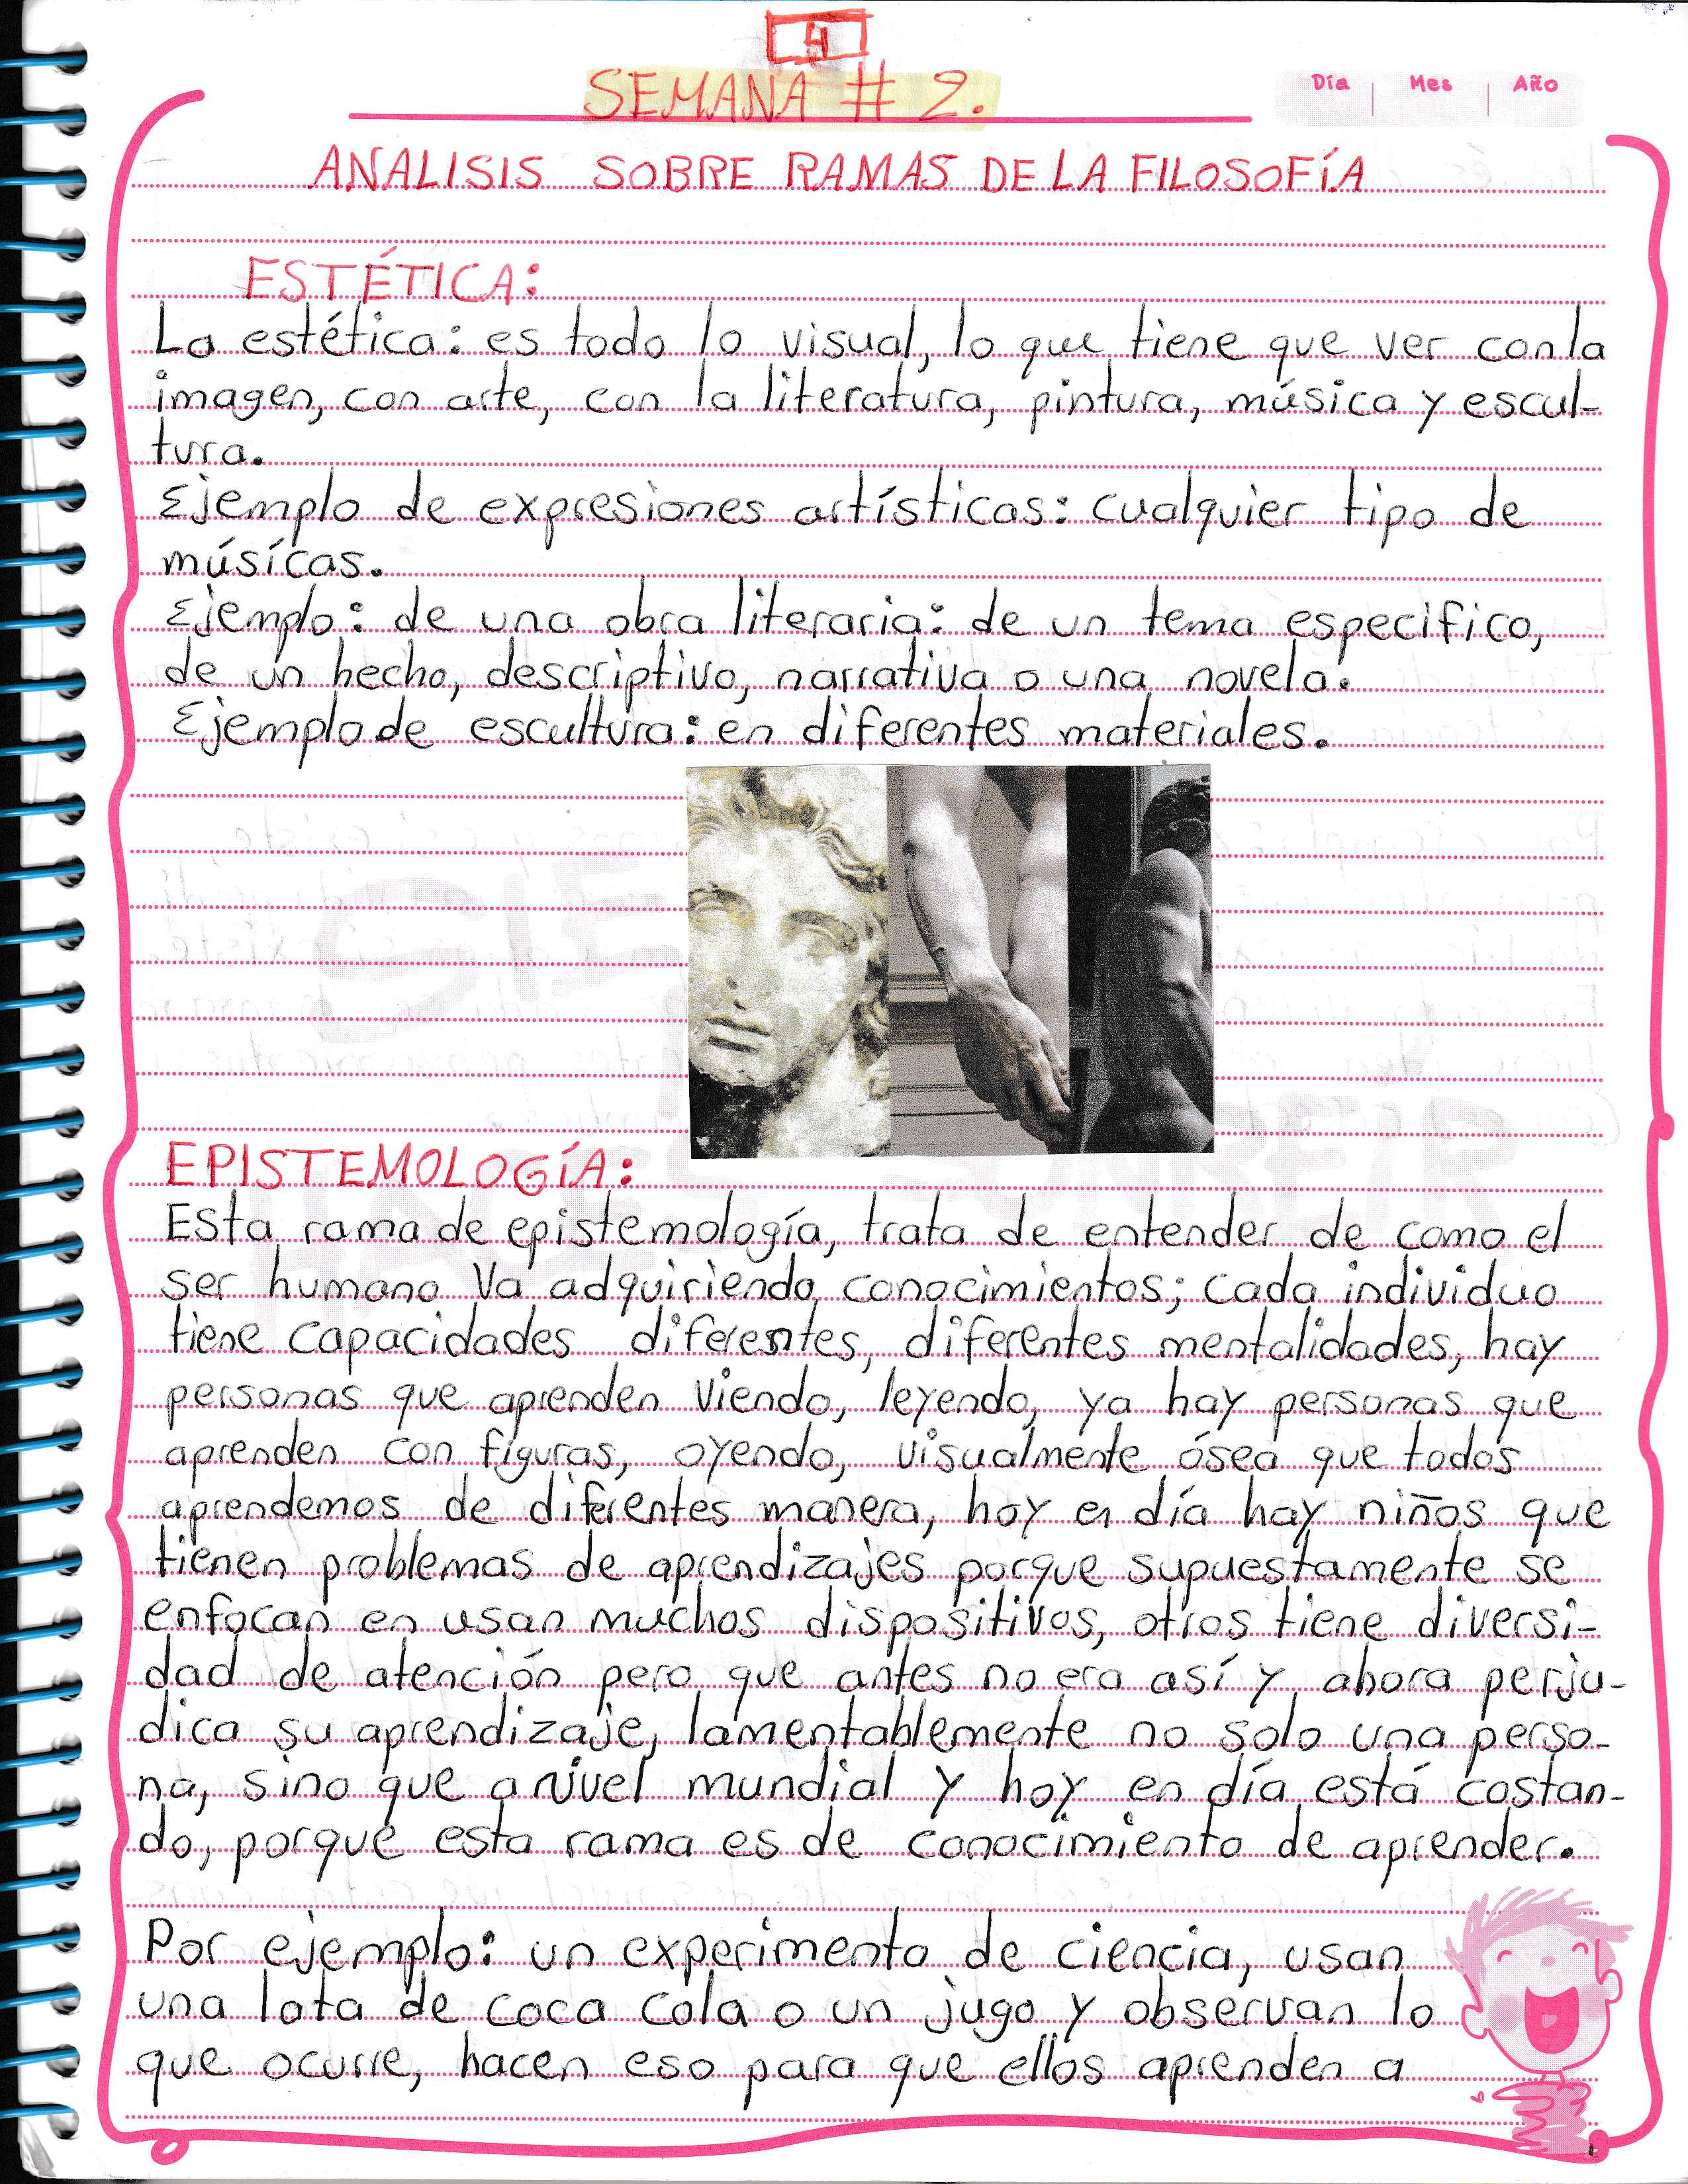 4
SEMANA # 2.
Día Mes Año
ANALISIS SOBRE RAMAS DE LA FILOSOFÍA
ESTÉTICA:
La estética: es todo lo visual, lo que tiene que ver con la
imagen, con arte, con la literatura, pintura, música y escul-
tura.
Ejemplo de expresiones artísticas: cualquier tipo de
músícas.
Ejemplo: de una obra literaria: de un tema especifico,
de un hecho, descriptivo, narrativa o una novela.
Ejemplo de escultura: en diferentes materiales.
EPISTEMOLOGÍA:
Esta rama de epistemología, trata de entender de como el
ser humano va adquiriendo conocimientos; cada individuo
tiene capacidades diferentes, diferentes mentalidades, hay
personas que aprenden viendo, leyendo, ya hay personas que
aprenden con figuras, oyendo, visualmente ósea que todos
aprendemos de diferentes manera, hoy en día hay niños que
tienen problemas de aprendizajes porque supuestamente se
enfocan en usan muchos dispositivos, otros tiene diversi-
dad de atención pero que antes no era así y ahora perju-
dica su aprendizaje, lamentablemente no solo una perso-
na, sino que a nivel mundial y hoy en día está costan-
do, porque esta rama es de conocimiento de aprender.
Por ejemplo: un experimento de ciencia, usan
una lata de coca cola o un jugo y observan lo
que ocurre, hacen eso para que ellos aprenden a